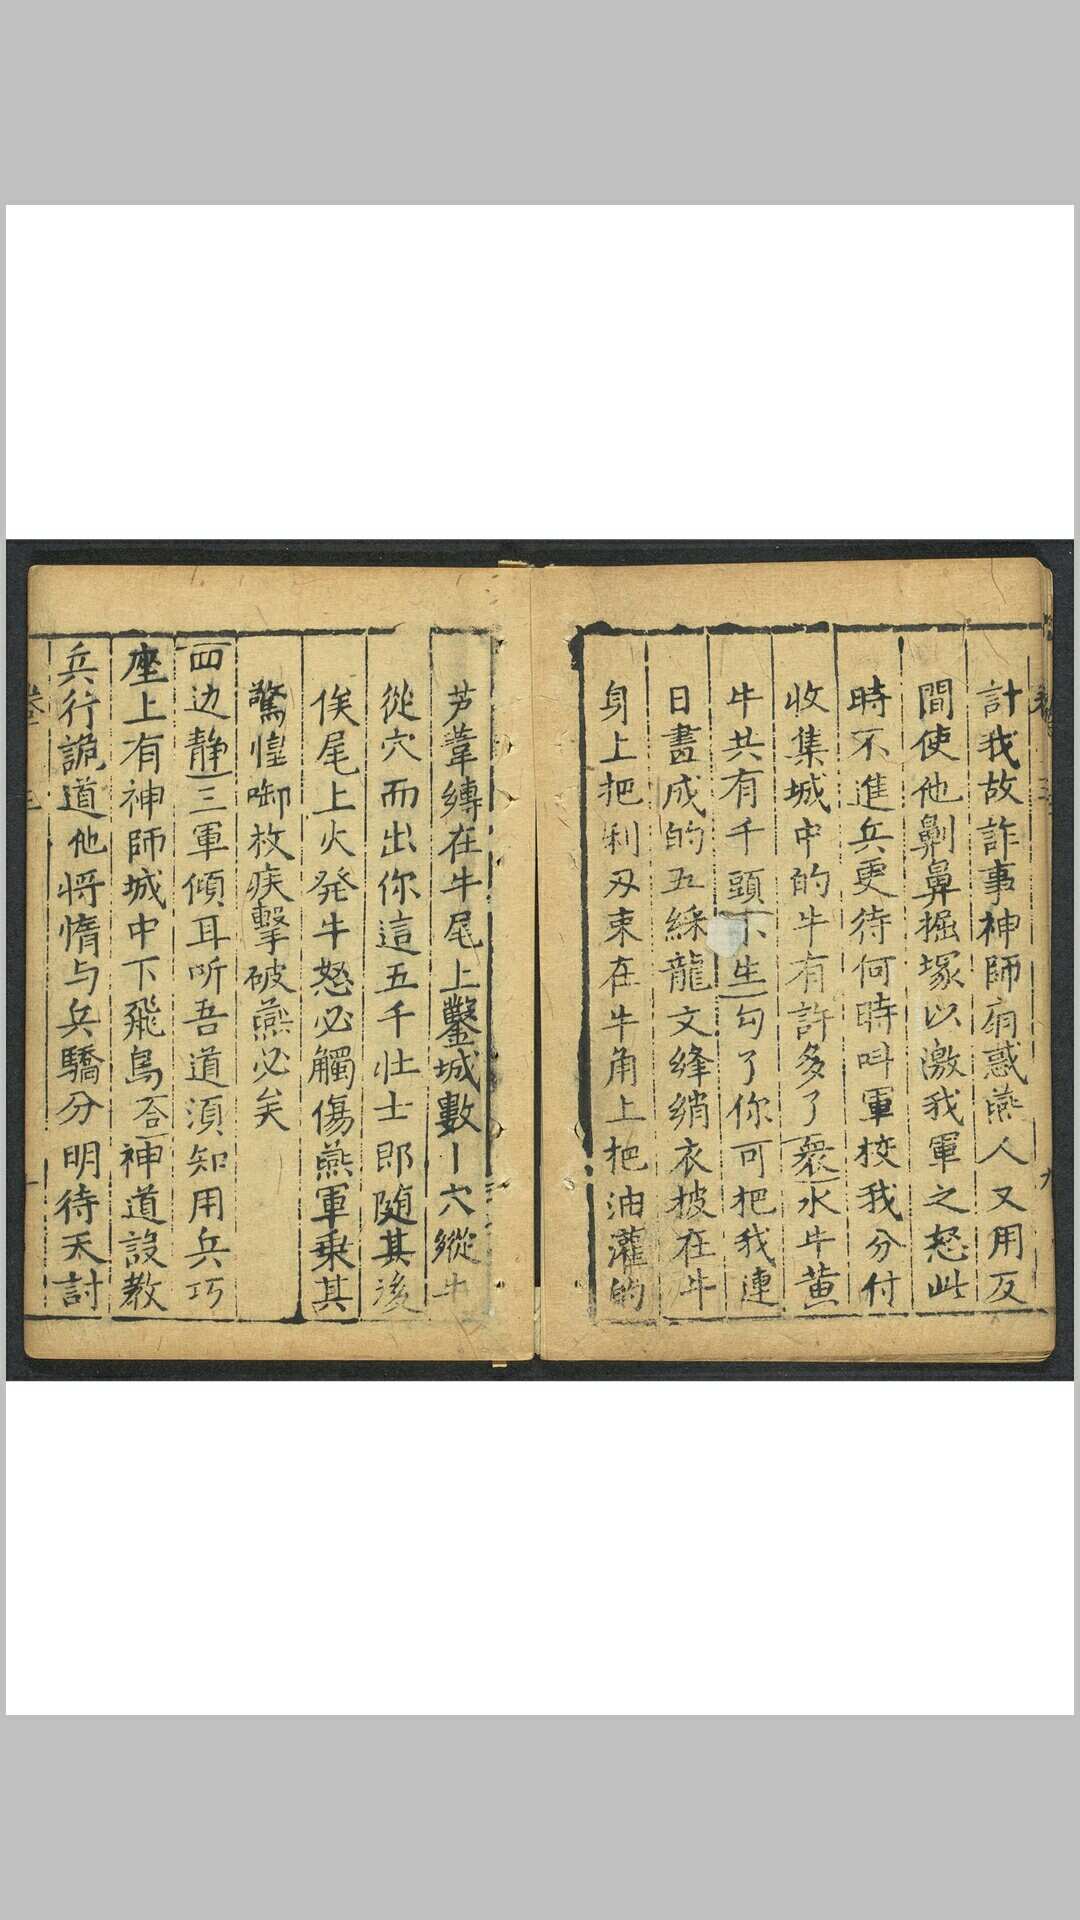 計我故詐事神師扇惑燕人又用反
間使他劓鼻掘塚以激我軍之怒此
時不進兵更待何時叫軍校我分付
收集城中的牛有許多了衆水牛黄
牛共有千頭生勾了你可把我連
日畫成的五綵龍文縫綃衣披在牛
身上把利刃束在牛角上把油灌的
芦葦縳在牛尾上鑿城數十穴縱牛
從穴而出你這五千壮士即随其後
俟尾上火発牛怒必觸傷燕軍乗其
驚惶啣枚疾擊破燕必矣
四边静三軍傾耳听吾道湏知用兵巧
座上有神師城中下飛鳥合神道設教
兵行詭道他将惰与兵驕分明待天討